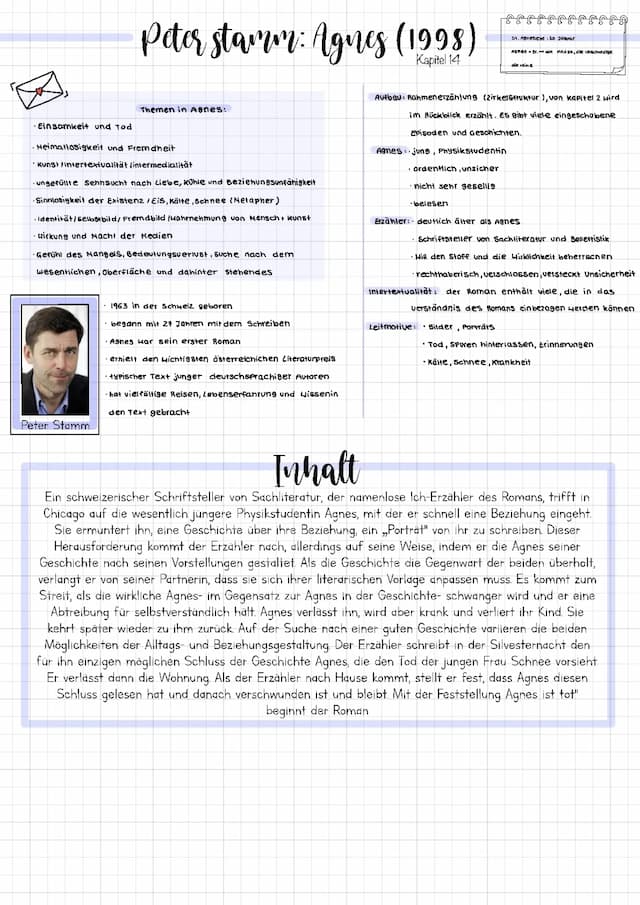 Peter stamm: Agnes (1998)
Kapitel 14
Themen in Agnes:
· Einsamkeit und Tod
· Heimatlosigkeit und Fremdheit
· Kunst /Intertextualität /Intermedialität
· ungefüllte Sehnsucht nach Liebe, Kühle und Beziehungsunfähigkeit
· Sinnlosigkeit der Existenz /Eis, Kälte, Schnee (Metapher)
· Identität/Selbstbild/ Fremdbild /Wahrnehmung von Mensch + Kunst
· Wirkung und Macht der Medien
· Gefühl des Mangels, Bedeutungsverlust, Suche nach dem
wesentlichen, Oberfläche und dahinter Stehendes
Peter Stamm
· 1963 in der Schweiz geboren
· begann mit 27 Jahren mit dem Schreiben
· Agnes war sein erster Roman
· erhielt den wichtigsten österreichichen Literaturpreis
· typischer Text junger deutschsprachiger Autoren
· hat vielfältige Reisen, Lebenserfahrung und Wissen in
den Text gebracht
Aufbau: Rahmenerzählung (Zirkelstruktur), von Kapitel 2 wird
im Rückblick erzählt. Es gibt viele eingeschobene
Episoden und Geschichten.
Agnes: · jung, Physikstudentin
· ordentlich, unsicher
· nicht sehr gesellig
· belesen
Erzähler: · deutlich älter als Agnes
· Schriftsteller von Sachliteratur und Belletistik
· Will den Stoff und die Wirklichkeit beherrschen
· rechthaberisch, verschlossen, versteckt Unsicherheit
Intertextualität: der Roman enthält viele, die in das
Verständnis des Romans einbezogen werden können
Leitmotive: · Bilder, Porträts
· Tod, Spuren hinterlassen, Erinnerungen
· Kälte, Schnee, Krankheit
Inhalt
Ein schweizerischer Schriftsteller von Sachliteratur, der namenlose Ich-Erzähler des Romans, trifft in
Chicago auf die wesentlich jüngere Physikstudentin Agnes, mit der er schnell eine Beziehung eingeht.
Sie ermuntert ihn, eine Geschichte über ihre Beziehung, ein „Porträt" von ihr zu schreiben. Dieser
Herausforderung kommt der Erzähler nach, allerdings auf seine Weise, indem er die Agnes seiner
Geschichte nach seinen Vorstellungen gestaltet. Als die Geschichte die Gegenwart der beiden überholt,
verlangt er von seiner Partnerin, dass sie sich ihrer literarischen Vorlage anpassen muss. Es kommt zum
Streit, als die wirkliche Agnes- im Gegensatz zur Agnes in der Geschichte- schwanger wird und er eine
Abtreibung für selbstverständlich hält. Agnes verlässt ihn, wird aber krank und verliert ihr Kind. Sie
kehrt später wieder zu ihm zurück. Auf der Suche nach einer guten Geschichte variieren die beiden
Möglichkeiten der Alltags- und Beziehungsgestaltung. Der Erzähler schreibt in der Silvesternacht den
für ihn einzigen möglichen Schluss der Geschichte Agnes, die den Tod der jungen Frau Schnee vorsieht.
Er verlässt dann die Wohnung. Als der Erzähler nach Hause kommt, stellt er fest, dass Agnes diesen
Schluss gelesen hat und danach verschwunden ist und bleibt. Mit der Feststellung Agnes ist tot"
beginnt der Roman